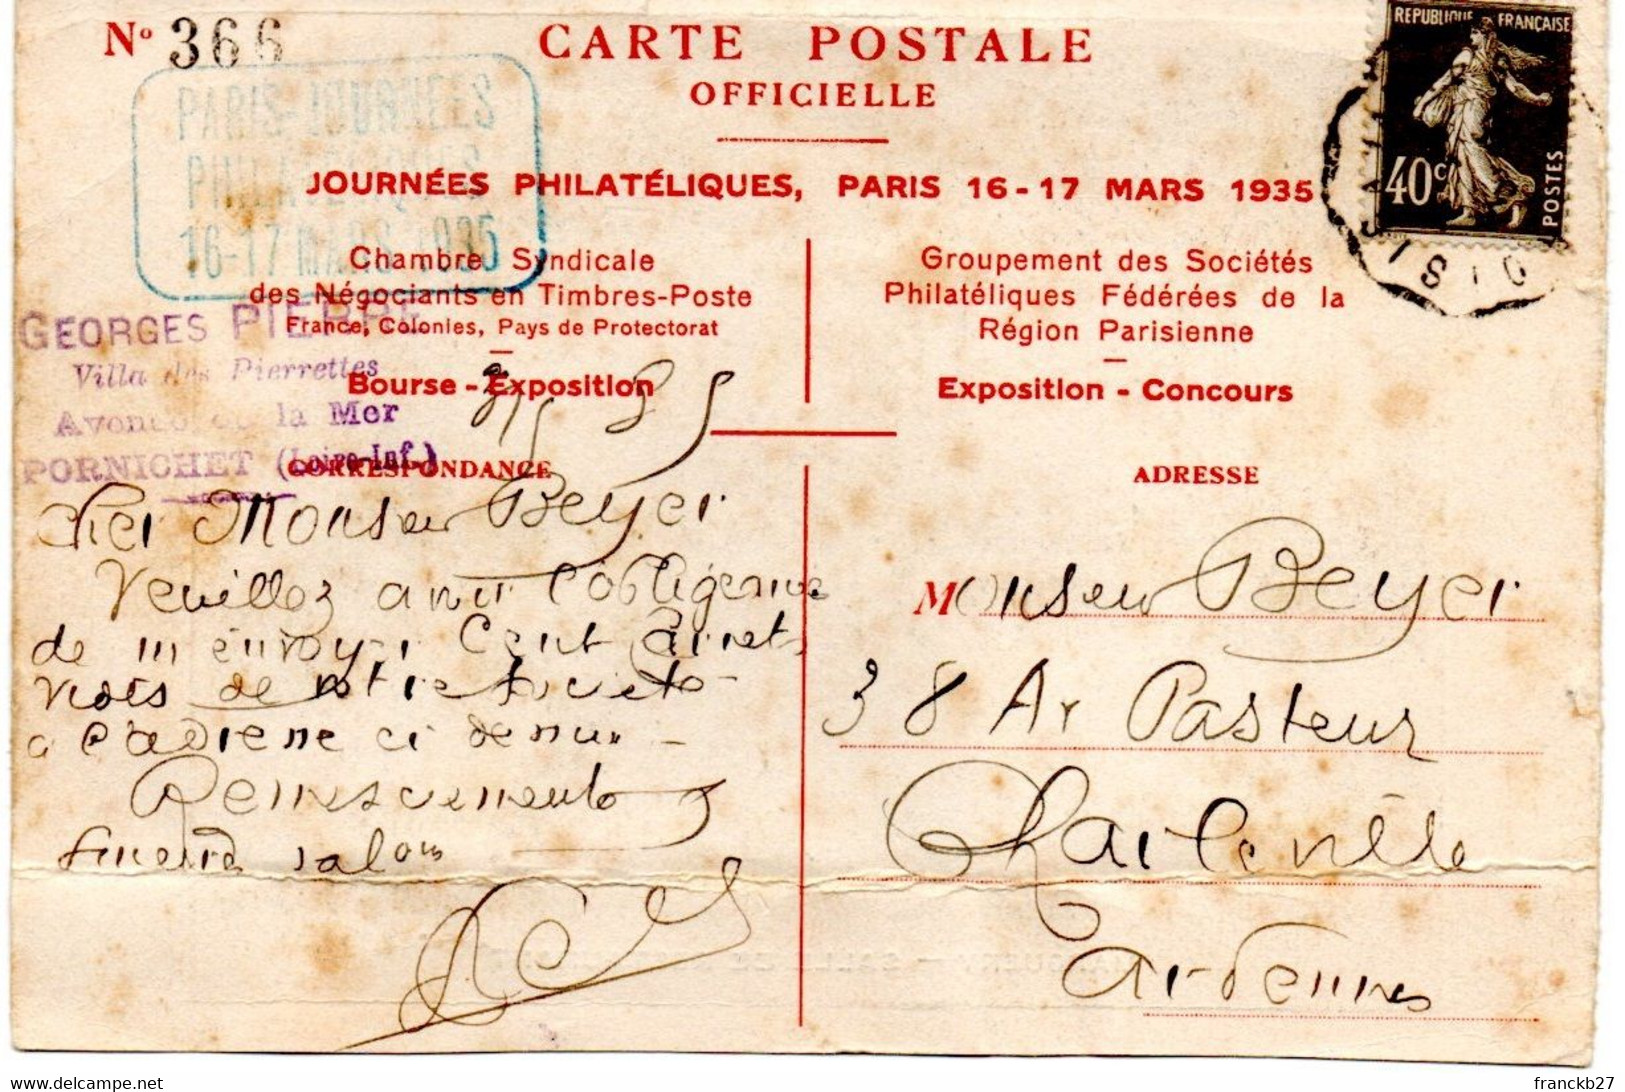 Nº 366
CARTE POSTALE
OFFICIELLE
REPUBLIQUE FRANÇAISE
40c
POSTES
PARIS-JOURNEES
PHILATELIQUES
16-17 MARS 1935
JOURNÉES PHILATÉLIQUES, PARIS 16-17 MARS 1935
Chambre Syndicale
des Négociants en Timbres-Poste
France, Colonies, Pays de Protectorat
Bourse-Exposition
Groupement des Sociétés
Philatéliques Fédérées de la
Région Parisienne
Exposition - Concours
GEORGES PIERRE
Villa des Pierrettes
Avenue de la Mer
PORNICHET (Loire-Inf.)
CORRESPONDANCE
Cher Monsieur Beyer
Veuillez avoir l'obligeance
de m'envoyer Cent Carnets
de votre
à l'adresse ci dessus -
Remerciements
ADRESSE
Monsieur Beyer
38 Av Pasteur
Charleville
Ardennes
delcampe.net
franckb27